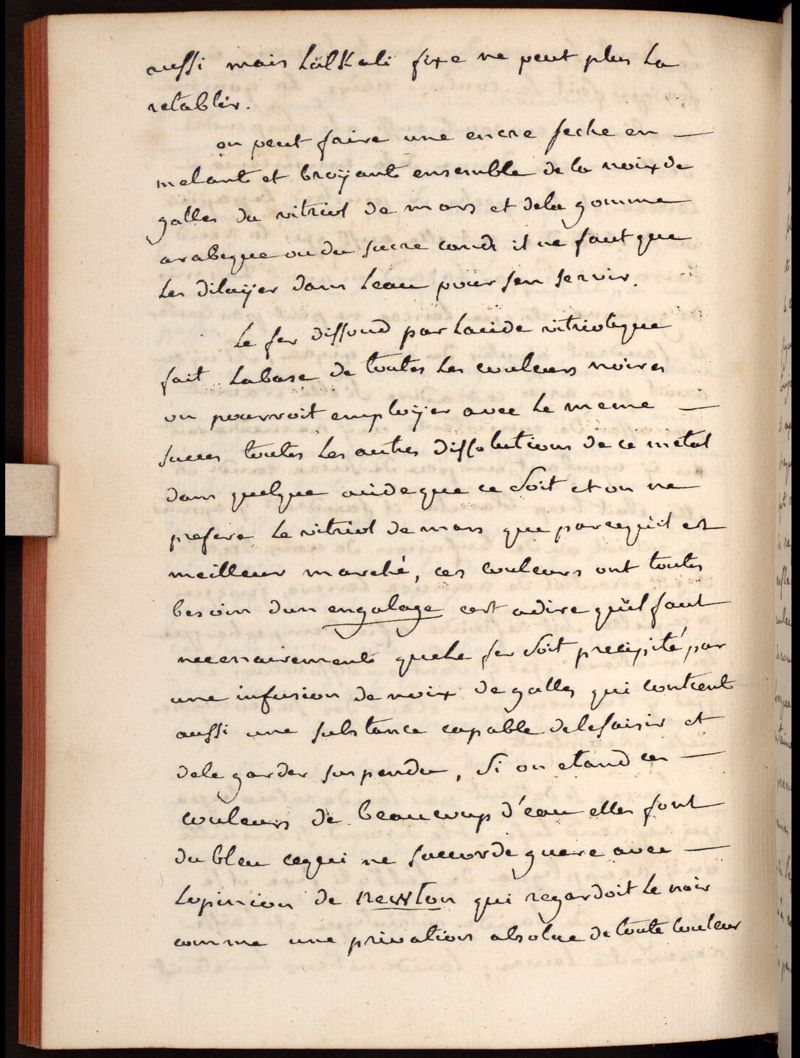 aussi mais Lalkali fixe ne peut plus La
retablir.
on peut faire une encre seche en —
melant et broÿant ensemble de la noix de
galles du vitriol de mars et dela gomme
arabique ou du sucre candi il ne faut que
les dilaÿer dans leau pour sen servir.
Le fer dissoud par lacide vitriolique
fait labase de toutes les couleurs noires
on pourroit emploÿer avec le meme —
succes toutes les autres dissolutions de ce metal
dans quelque acide que ce soit et on ne
prefere le vitriol de mars que parcequil est
meilleur marché, ces couleurs ont toutes
besoin dun engalage cest adire quil faut
necessairement que le fer soit precipité par
une infusion de noix de galles qui contient
aussi une substance capable delesaisir et
dele garder suspendu, Si on etand ces —
couleurs de beaucoup d'eau elles font
du bleu cequi ne saccorde guere avec —
Lopinion de newton qui regardoit le noir
comme une privation absolue de toute couleur